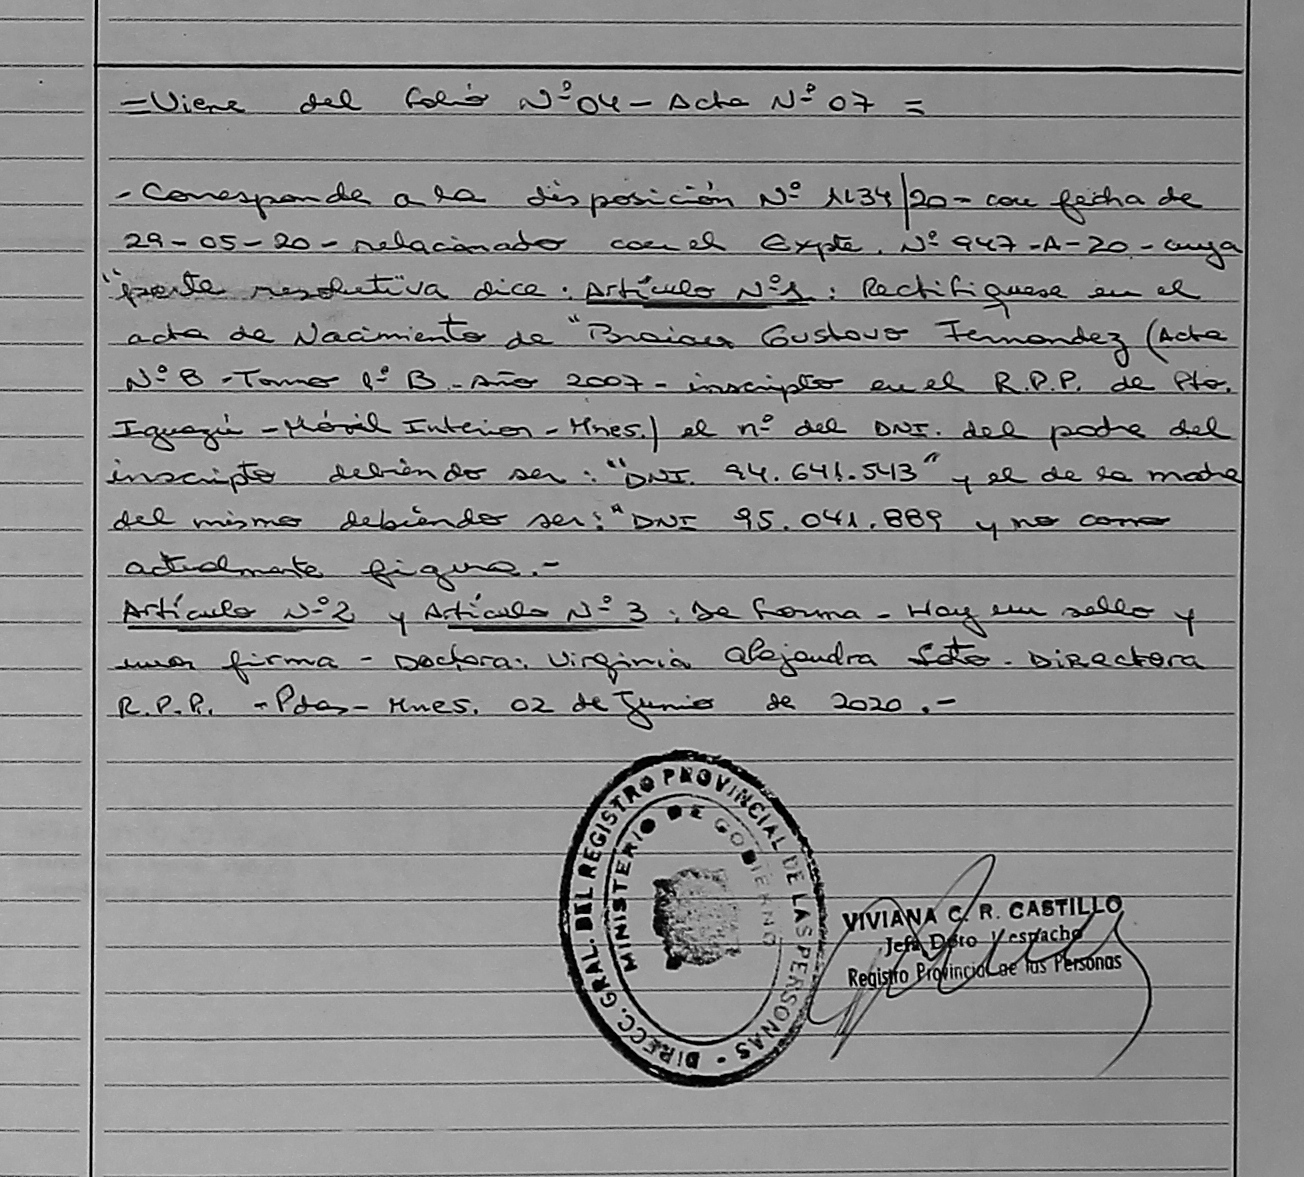 =Viene del Folio Nº 04 - Acta Nº 07 =
- Corresponde a la disposición Nº 1134/20 - con fecha de
29-05-20 - relacionado con el Expte. Nº 947-A-20 - cuya
"parte resolutiva dice: Artículo Nº1: Rectifíquese en el
acta de Nacimiento de "Braian Gustavo Fernandez (Acta
Nº 8 - Tomo 1º B - Año 2007 - inscripto en el R.P.P. de Pto.
Iguazú - Móvil Interior - Mnes.) el nº del DNI. del padre del
inscripto debiendo ser: "DNI. 94.641.543" y el de la madre
del mismo debiendo ser: "DNI 95.041.889 y no como
actualmente figura.-
Artículo Nº2 y Artículo Nº 3: De Forma - Hay un sello y
una firma - Doctora: Virginia Alejandra Soto - Directora
R.P.P. - Pdas - Mnes. 02 de Junio de 2020.-
DIRECC. GRAL. DEL REGISTRO PROVINCIAL DE LAS PERSONAS -
MINISTERIO DE GOBIERNO
VIVIANA C. R. CASTILLO
Jefa Dpto Despacho
Registro Provincial de las Personas